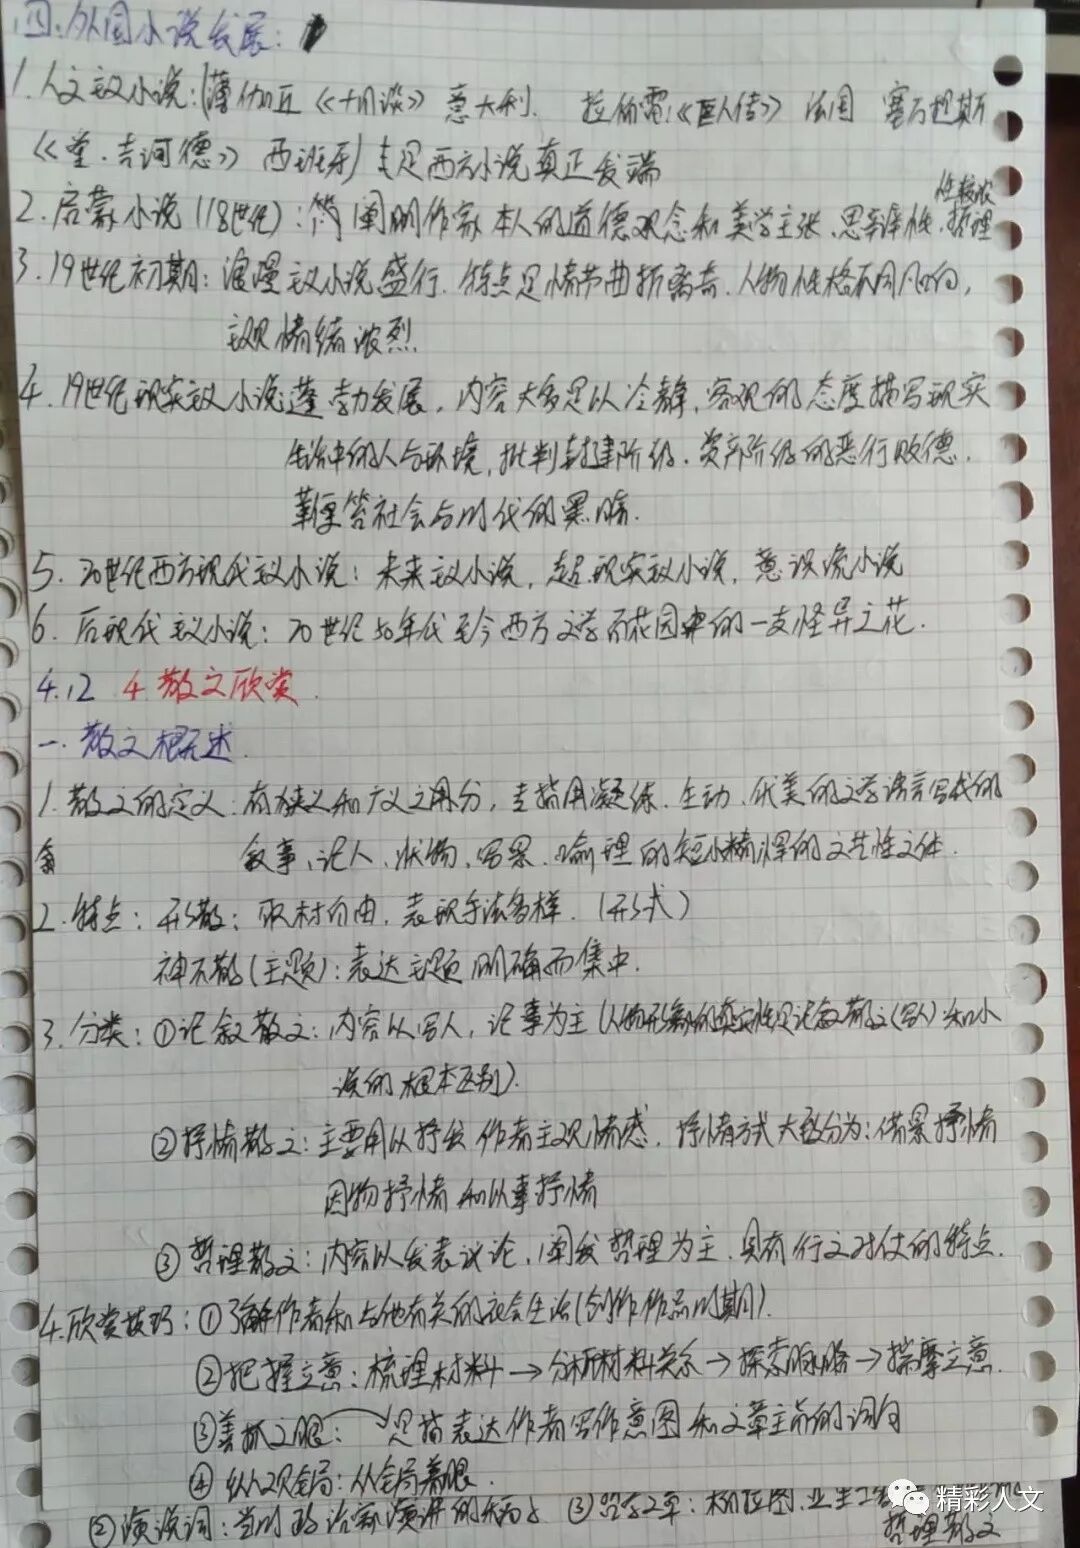 四、外国小说发展:
1.人文主义小说:(薄伽丘《十日谈》意大利. 拉伯雷《巨人传》法国 塞万提斯
《堂.吉诃德》西班牙)是西方小说真正发端
性较浓
2.启蒙小说(18世纪):阐明作家本人的道德观念和美学主张、思辩性、哲理
3.19世纪初期:浪漫主义小说盛行.特点是情节曲折离奇、人物性格不同凡响,
主观情绪浓烈.
4.19世纪现实主义小说蓬勃发展,内容大多是以冷静、客观的态度描写现实
生活中的人与环境,批判封建阶级、资产阶级的恶行败德.
鞭笞社会与时代的黑暗.
5.20世纪西方现代主义小说:未来主义小说,超现实主义小说,意识流小说
6.后现代主义小说:20世纪50年代至今西方文学百花园中的一支怪异之花.
4.12 4 散文欣赏.
一.散文概述.
1.散文的定义:有狭义和广义之分,是指用凝练、生动、优美的文学语言写成的
叙事、记人、状物、写景、喻理的短小精悍的文艺性文体.
2.特点:形散:取材自由,表现手法多样.(形式)
神不散(主题):表达主题明确而集中.
3.分类:①记叙散文:内容以写人,记事为主(人物形象的真实性是记叙散文(写人)和小
说的根本区别).
②抒情散文:主要用以抒发作者主观情感,抒情方式大致分为:借景抒情
因物抒情和以事抒情
③哲理散文:内容以发表议论,阐发哲理为主,具有行文对仗的特点.
4.欣赏技巧:①了解作者和与他有关的社会生活(创作作品时期).
②把握立意:梳理材料→分析材料关系→探索脉络→揣摩立意.
③善抓文眼:是指表达作者写作意图和文章主旨的词句
④纵观全局:从全局着眼.
②演说词:当时政治家演讲的
哲理散文
精彩人文